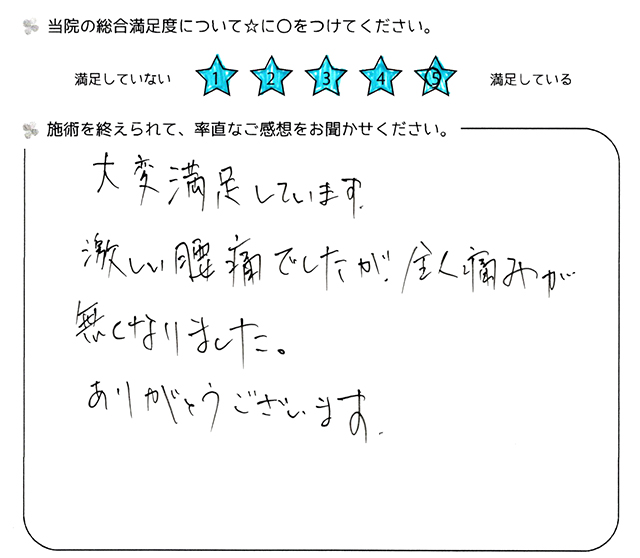 当院の総合満足度について☆に〇をつけてください。
満足していない 1 2 3 4 5 満足している
施術を終えられて、率直なご感想をお聞かせください。
大変満足しています.
激しい腰痛でしたが、全く痛みが
無くなりました。
ありがとうございます.